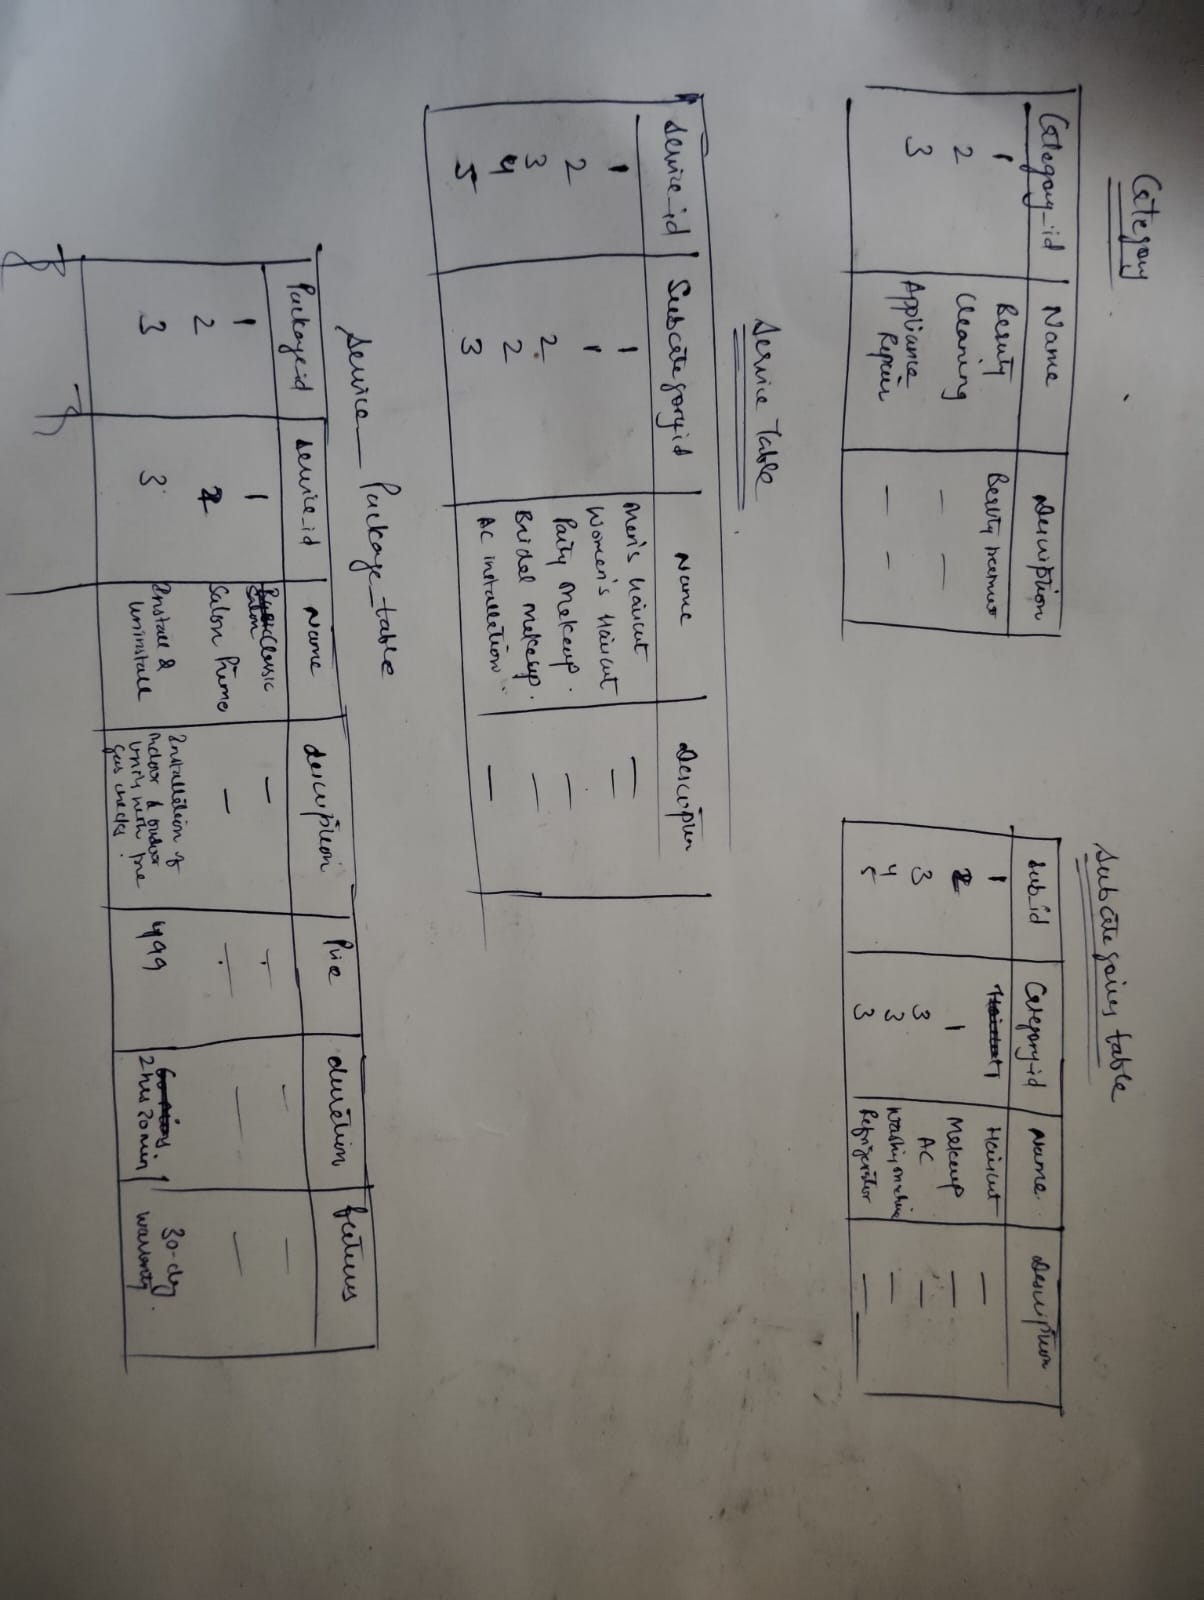 Category
Category_id Name Description
1 Beauty Beauty
2 Cleaning — —
3 Appliance Repair — —
Subcategories table
Sub_id Category_id Name Description
1 1 Haircut —
2 1 Makeup —
3 3 AC —
4 3 Washing machine —
5 3 Refrigerator —
Service Table
Service_id Subcategory_id Name Description
1 1 Men's Haircut —
2 1 Women's Haircut —
3 2 Party Makeup. —
4 2 Bridal Makeup. —
5 3 AC installation —
Service_Package_table
Package_id Service_id Name description Price duration features
1 1 Classic Salon — — — —
2 2 Salon Prime — — — —
3 3 Install & Uninstall Installation of indoor & outdoor units with pre gas checks. 499 2 hrs 20 min 30-day warranty